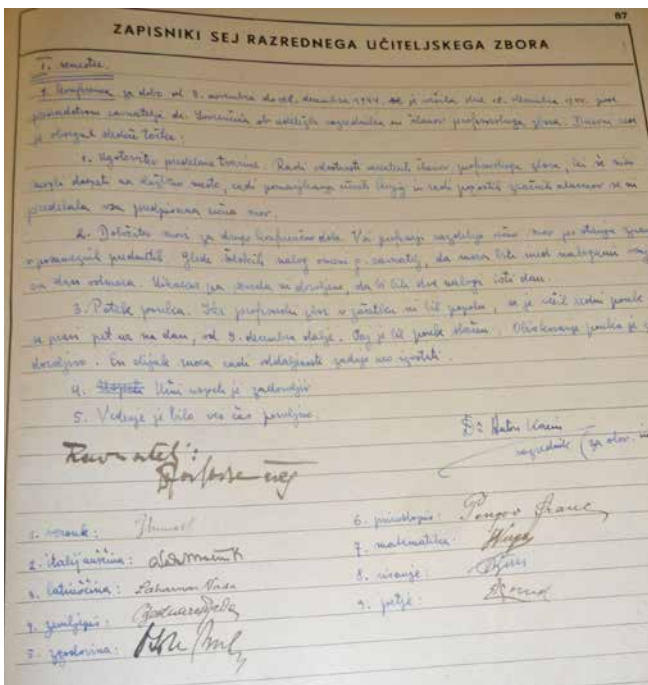 87
ZAPISNIKI SEJ RAZREDNEGA UČITELJSKEGA ZBORA
I. semester.
1. konferenca za dobo od 8. novembra do 18. decembra 1944 je vršila dne 18. decembra 1944. pod
predsedstvom ravnatelja dr. Lovrenčiča ob udeležbi razrednika in članov profesorskega zbora. Dnevni red
je obsegal sledeče točke:
1. Ugotovitev predelane tvarine. Radi odsotnosti nekaterih članov profesorskega zbora, ki še niso
mogli dospeti na službeno mesto, radi pomanjkanja učnih knjig in radi pogostih zračnih alarmov se ni
predelala vsa predpisana učna snov.
2. Določitev snovi za drugo konferenčno dobo. Vsi profesorji razdelijo učno snov po
posameznih predmetih. Glede šolskih nalog omeni g. ravnatelj, da mora biti med nalogami
en dan odmora. Nikakor pa seveda ni dovoljeno, da bi bili dve nalogi isti dan.
3. Potek pouka. Ker profesorski zbor v začetku ni bil popoln, se je vršil redni pouk
se pravi pet ur na dan, od 9. decembra dalje. Prej je bil pouk skrčen. Obiskovanje pouka je
zadovoljivo. En dijak mora radi oddaljenosti zadnjo uro izostati.
4. Učni uspeh je zadovoljiv
5. Vedenje je bilo ves čas povoljno.
Dr. Anton
razrednik (za slov. in
Ravnatelj:
1. veronauk:
2. italijanščina:
3. latinščina: Vida
4. zemljepis:
5. zgodovina:
6. prirodopis: Pengov Franc
7. matematika:
8. risanje:
9. petje: